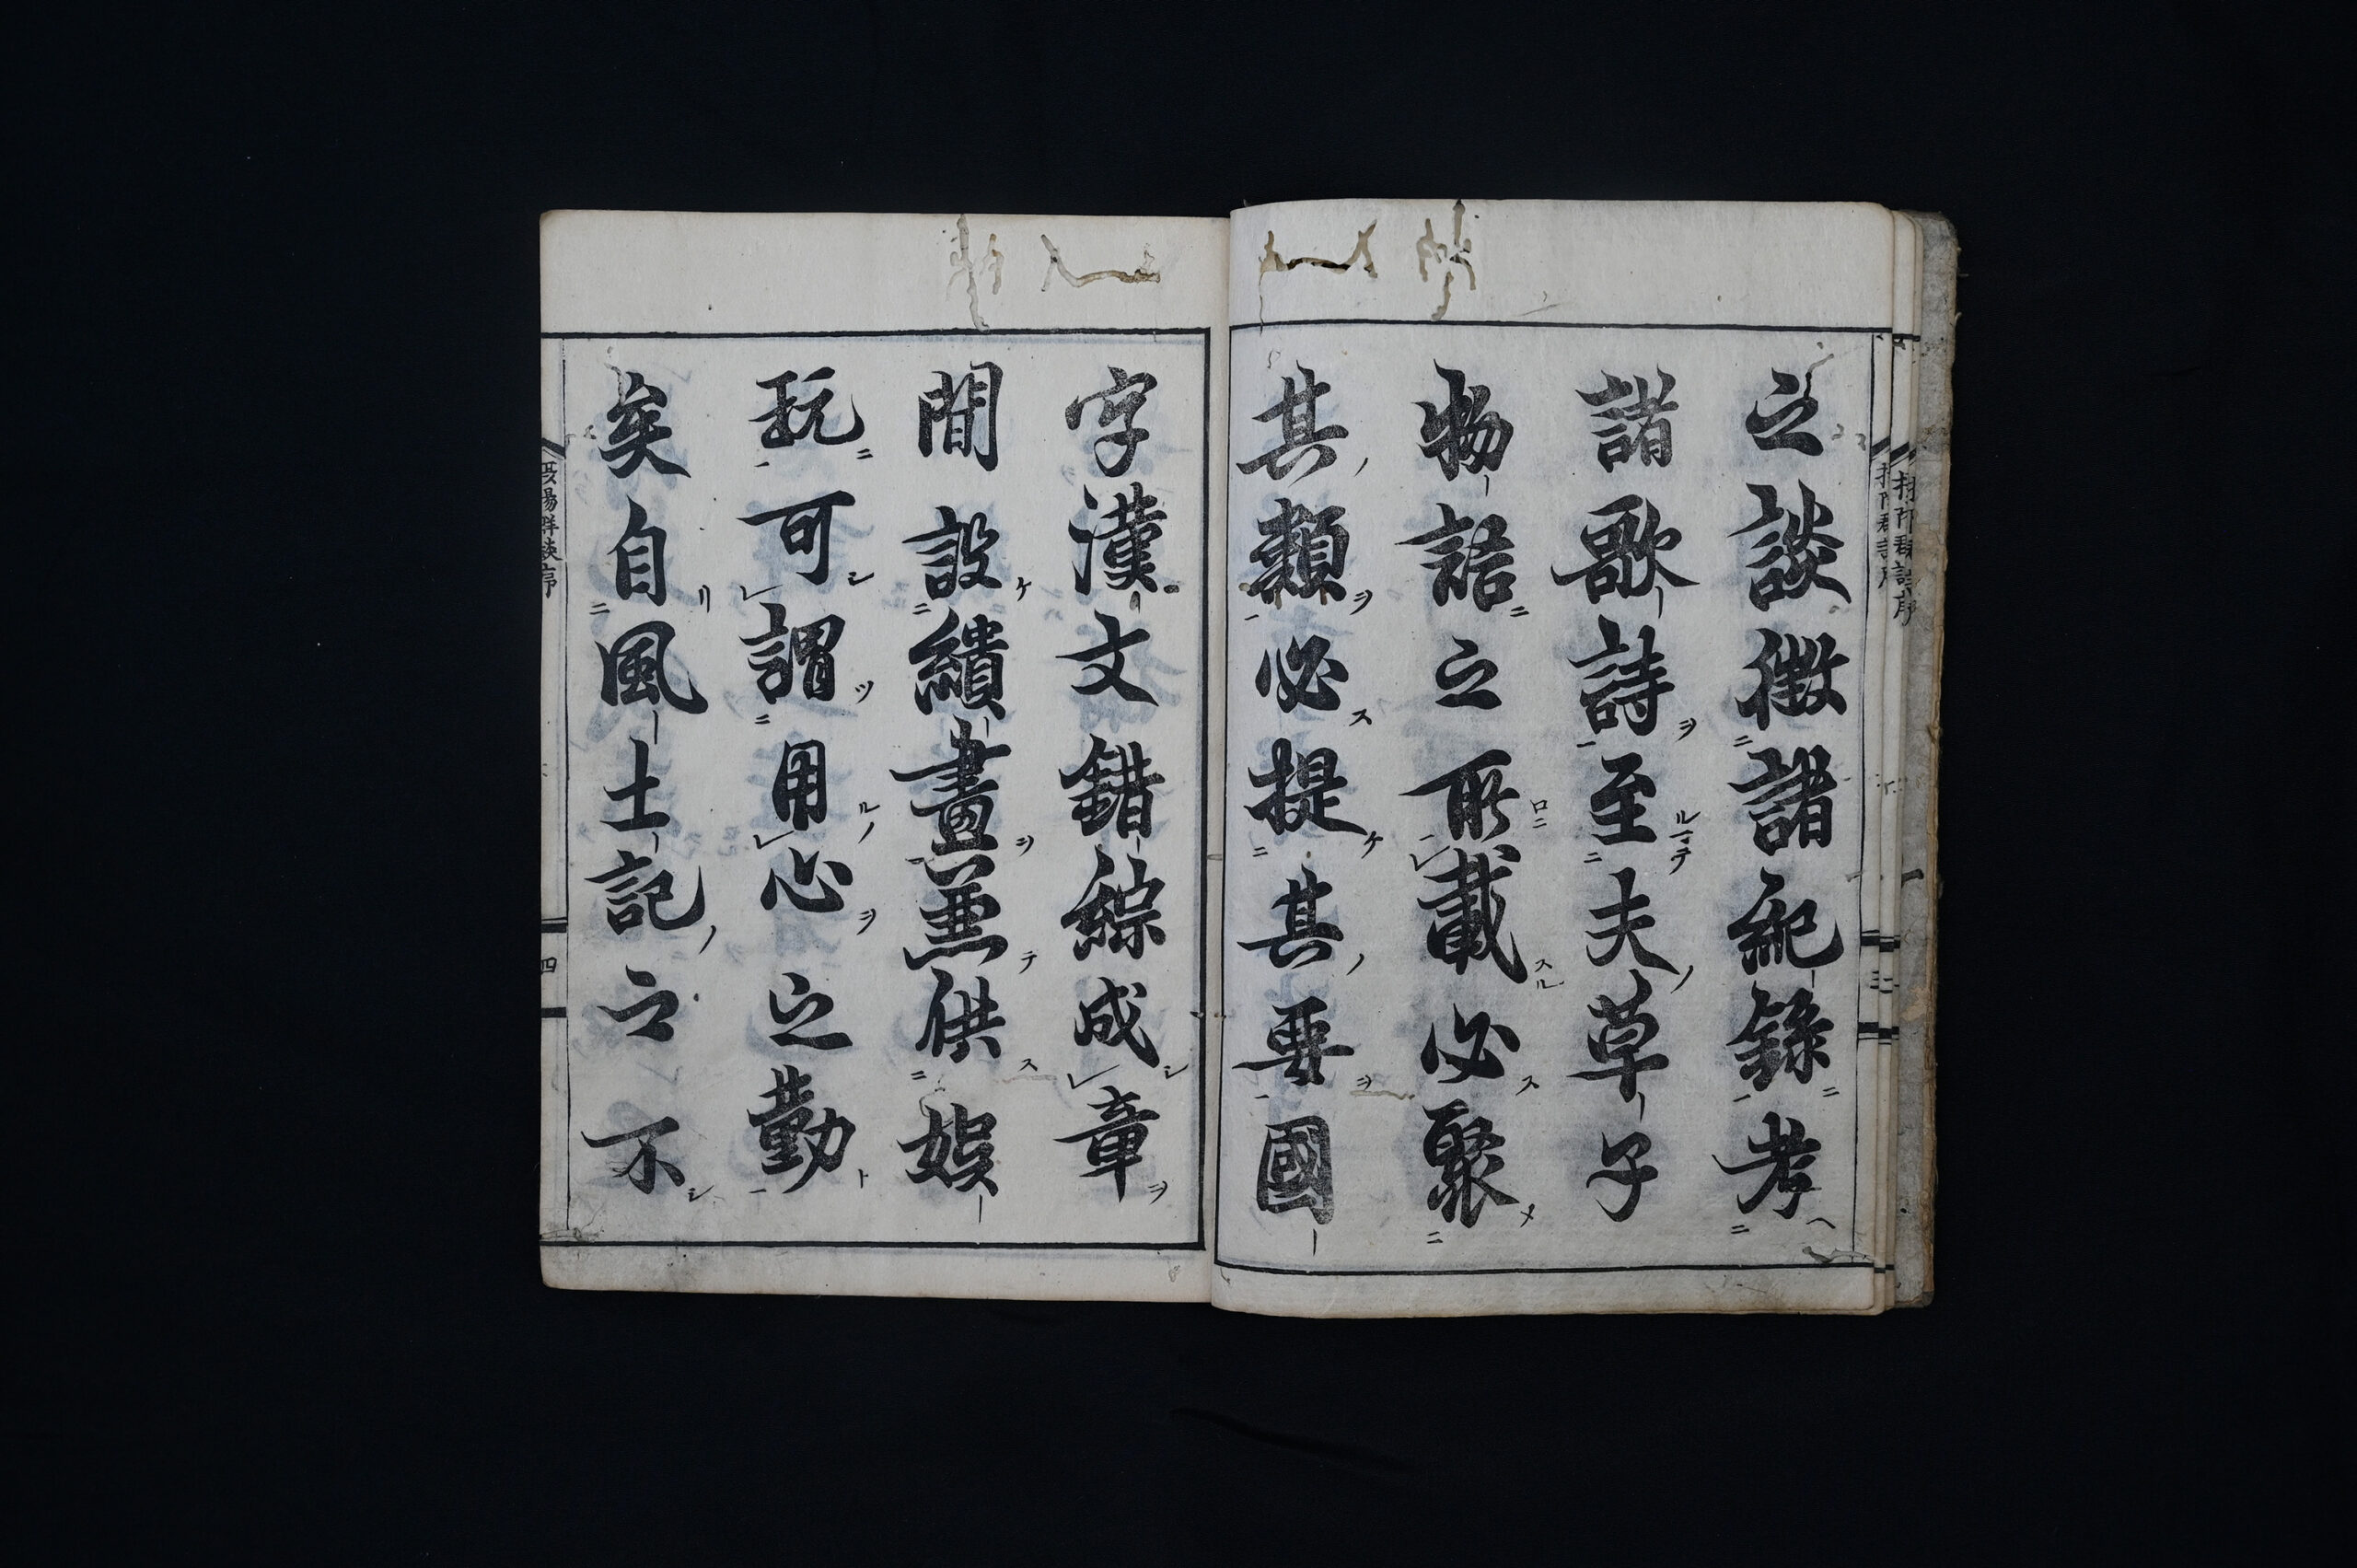 之談徴諸紀録考
諸歌詩至夫草子
物語之所載必聚
其類必提其要國
字漢文錯綜成章
間設繢畫兼供娯
玩可謂用心之勤
矣自風土記之不